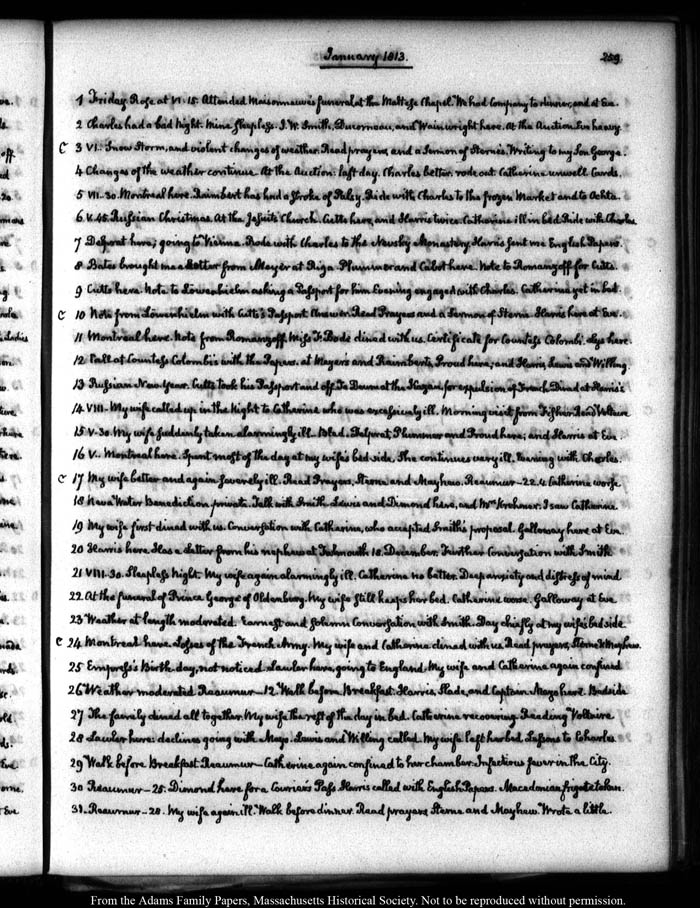 January 1813.
259
1 Friday Rose at VI.15. Attended Maisonneuve's funeral at the Maltese Chapel. We had Company to dinner, and at Eve.
2 Charles had a bad Night. Mine sleepless. J. W. Smith, Ducorneau, and Wainwright here. At the Auction. Eve heavy
C 3 VI. Snow Storm, and violent changes of weather. Read prayers, and a Sermon of Sterne's. Writing to my Son George.
4 Changes of the weather continue. At the Auction: last day. Charles better. rode out. Catherine unwell. Cards.
5 VII.30. Montreal here. Raimbert has had a stroke of Palsy. Ride with Charles to the frozen Market and to Ochta.
6 V.45. Russian Christmas. At the Jesuits Church. Cutts here, and Harris twice. Catherine ill in bed. Ride with Charles
7 Delprat here; going to Vienna. Rode with Charles to the Newsky Monastery. Harris sent me English Papers.
8 Bates brought me a Letter from Meyer at Riga. Plummer and Cabot here. Note to Romanzoff for Cutts.
9 Cutts here. Note to Löwenhielm asking a Passport for him. Evening engaged with Charles. Catherine yet in bed.
C 10 Note from Löwenhielm with Cutts's Passport. Answer. Read Prayers and a Sermon of Sterne. Harris here at Eve.
11 Montreal here. Note from Romanzoff. Miss F. Bode dined with us. Certificate for Countess Colombi. Lys here.
12 Call at Countess Colombi's with the Papers. at Meyer's and Raimbert's. Proud here; and Harris, Lewis and Willing.
13 Russian New-Year. Cutts took his Passport and off. Te Deum at the Kazan, for expulsion of French. Dined at Harris's
14 VIII. My wife called up in the Night to Catherine who was excessively ill. Morning visit from Fisher. Read Voltaire
15 V.30. My wife suddenly taken alarmingly ill. Bled. Delprat, Plummer and Proud here; and Harris at Eve
16 V. Montreal here. Spent most of the day at my wife's bed side. She continues very ill. Evening with Charles.
C 17 My wife better and again severely ill. Read Prayers, Sterne and Mayhew. Reaumur–22.4. Catherine worse
18 Neva Water Benediction private. Talk with Smith. Lewis and Dimond here, and Mrs Krehmer. I saw Catherine
19 My wife first dined with us. Conversation with Catherine, who accepted Smith's proposal. Galloway here at Eve.
20 Harris here. Has a Letter from his nephew at Falmouth 18. December. Further Conversation with Smith
21 VIII.30. Sleepless Night. My wife again alarmingly ill. Catherine no better. Deep anxiety and distress of mind
22 At the funeral of Prince George of Oldenburg. My wife still keeps her bed. Catherine worse. Galloway at Eve
23 Weather at length moderated. Earnest and solemn Conversation with Smith. Day chiefly at my wife's bed side
C 24 Montreal here. Losses of the French Army. My wife and Catherine dined with us. Read prayers, Sterne & Mayhew.
25 Empress's Birth-day, not noticed. Lawler here, going to England. My wife and Catherine again confined
26 Weather moderated Reaumur–12. Walk before Breakfast. Harris, Slade, and Captain Mayo here. Bedside
27 The family dined all together. My wife the rest of the day in bed. Catherine recovering. Reading Voltaire
28 Lawler here: declines going with Mayo. Lewis and Willing called. My wife left her bed. Lessons to Charles
29 Walk before Breakfast. Reaumur– Catherine again confined to her chamber. Infectious fever in the City.
30 Reaumur–25. Dimond here for a Courier's Pass. Harris called with English Papers. Macedonian frigate taken.
31 Reaumur–28. My wife again ill. Walk before dinner. Read prayers, Sterne and Mayhew. Wrote a little.
From the Adams Family Papers, Massachusetts Historical Society. Not to be reproduced without permission.